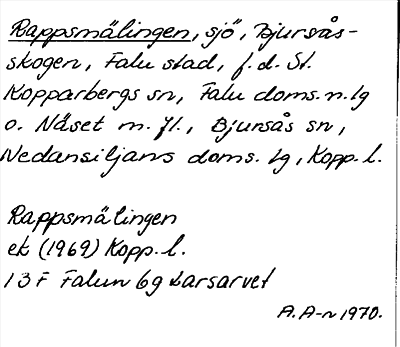 Rappsmälingen, sjö, Bjursås-
skogen, Falu stad, f.d. St.
Kopparbergs sn, Falu doms.n.lg
o. Näset m. fl., Bjursås sn,
Nedansiljans doms. lg, Kopp. l.
Rappsmälingen
ek (1969) Kopp. l.
13F Falun 6g Larsarvet
A.A-n 1970.